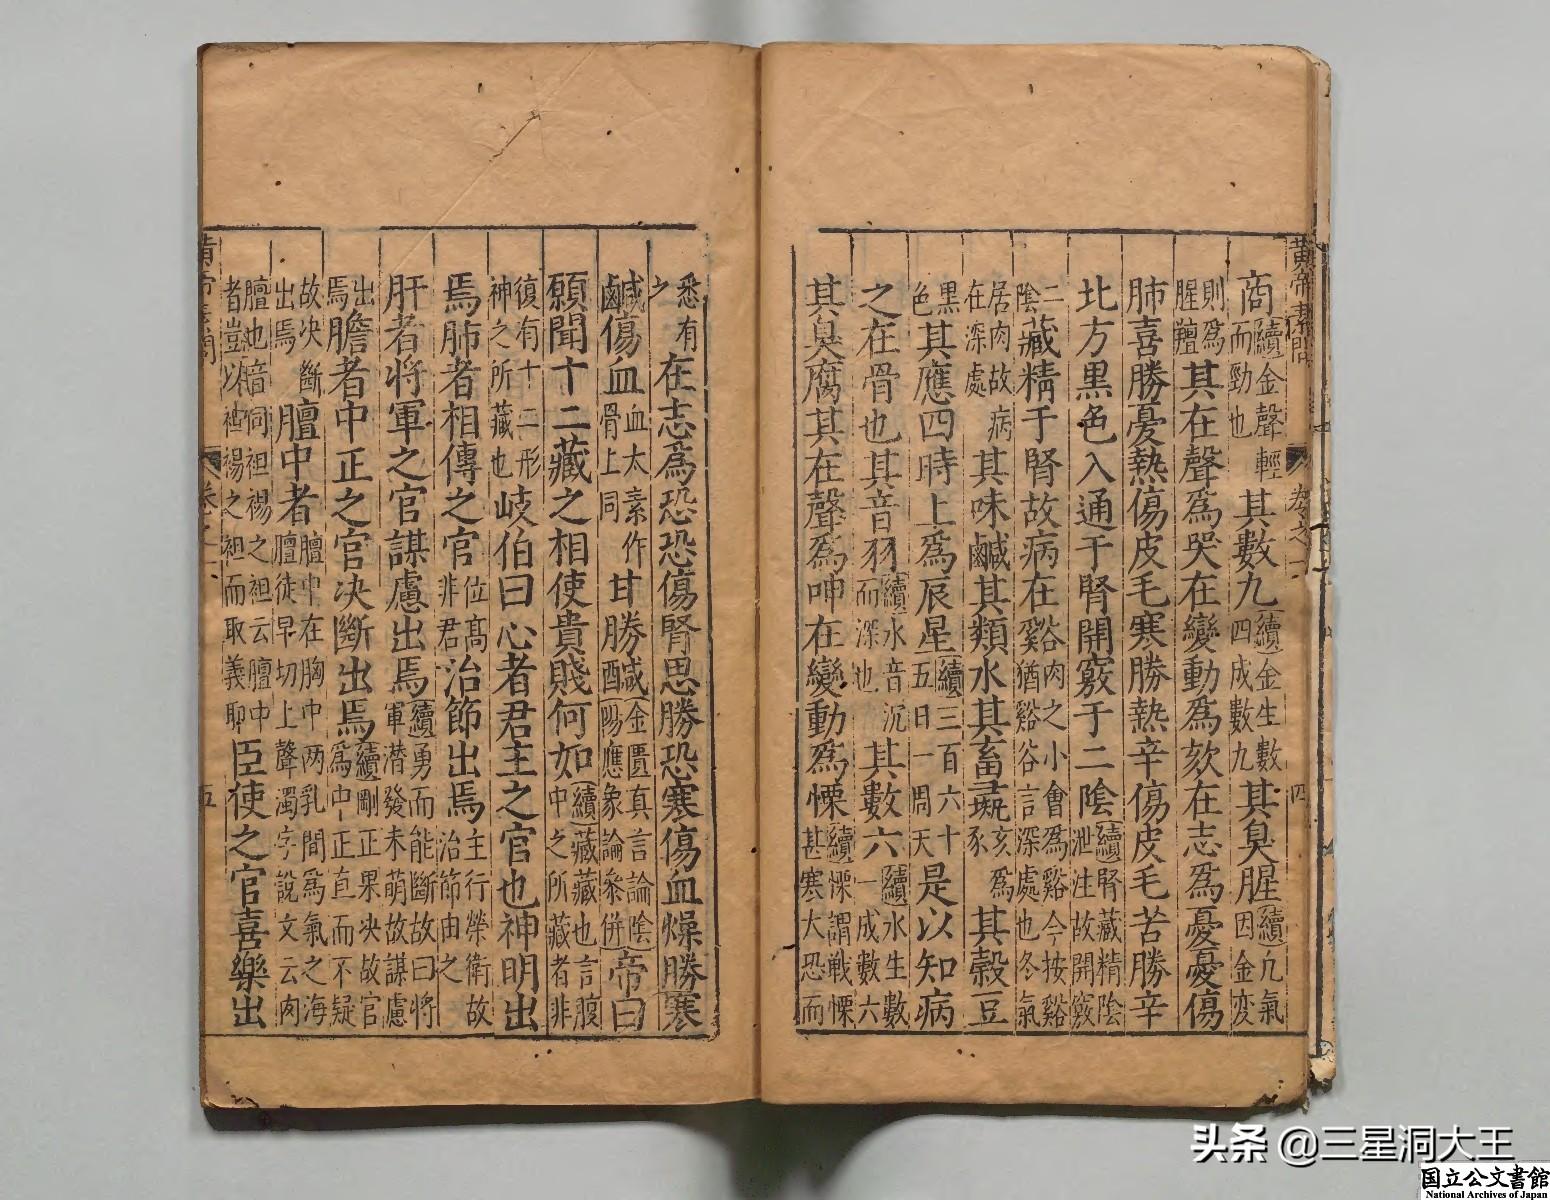 黃帝素問
卷之一
四
商續金聲輕而勁也其數九續金生數四成數九其臭腥續凢氣因金変
則爲腥羶其在聲爲哭在變動爲欬在志爲憂憂傷
肺喜勝憂熱傷皮毛寒勝熱辛傷皮毛苦勝辛
北方黒色入通于腎開竅于二隂續腎藏精隂泄注故開竅
二隂藏精于腎故病在谿谷肉之小會爲谿今按谿猶谿谷言深處也冬氣
居肉故病在深處其味鹹其類水其畜彘亥爲豕其榖豆
黒色其應四時上爲辰星續三百六十五日一周天是以知病
之在骨也其音羽續水音沉而深也其數六續水生數一成數六
其臭腐其在聲爲呻在變動爲慄續慄謂戦慄甚寒大恐而
悉有之在志爲恐恐傷腎思勝恐寒傷血燥勝寒
鹹傷血血太素作骨上同甘勝鹹金匱真言論隂陽應象論叅併帝曰
願聞十二藏之相使貴賤何如續藏藏也言腹中之所藏者非
復有十二形神之所藏也岐伯曰心者君主之官也神明出
焉肺者相傳之官位髙非君治節出焉主行榮衛故治節由之
肝者將軍之官謀慮出焉續勇而能斷故曰將軍潜發未萌故謀慮
出焉膽者中正之官决斷出焉續剛正果决故官爲中正直而不疑
故决斷出焉膻中者膻中在胸中两乳間爲氣之海膻徒旱切上聲濁字說文云肉
膻也音同袒裼之袒云膻中者豈以袒裼之袒而取義耶臣使之官喜樂出
卷之一
五
头条 @三星洞大王
国立公文書館
National Archives of Japan